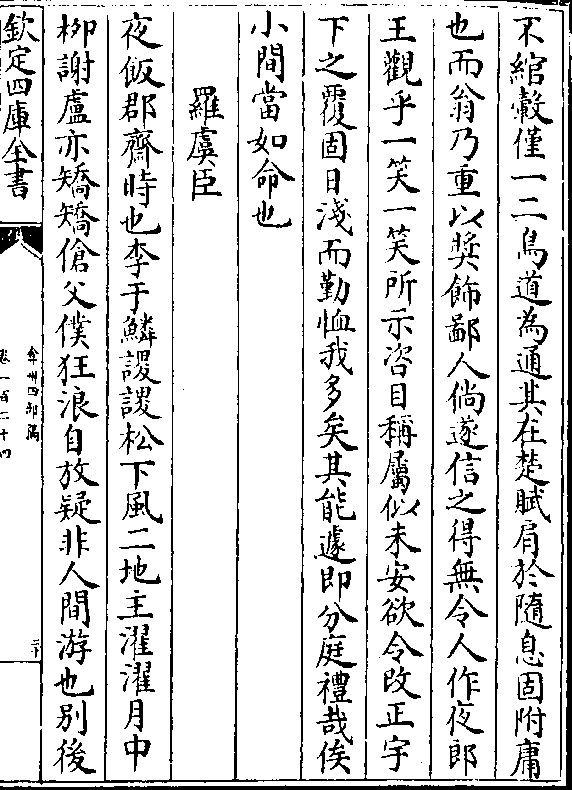 不綰轂僅一二鳥道為通其在楚賦肩於隨息固附庸
也而翁乃重以奬飾鄙人倘遂信之得無令人作夜郎
王觀乎一笑一笑所示咨目稱屬似未安欲令改正宇
下之覆固日淺而勤恤我多矣其能遽即分庭禮哉俟
小間當如命也
羅虞臣
夜飯郡齋時也李于鱗謖謖松下風二地主濯濯月中
栁謝盧亦矯矯傖父僕狂浪自放疑非人間游也别後
欽定四庫全書
弇州四部稿
卷一百二十四